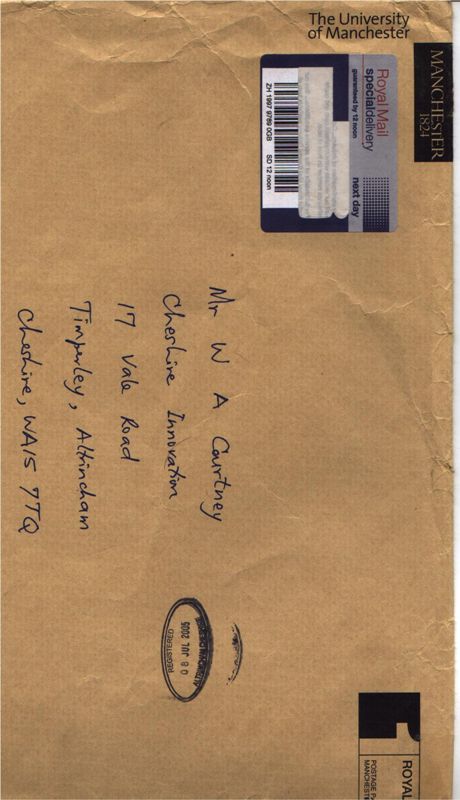 The University
of Manchester
MANCHESTER
1824
Royal Mail
specialdelivery
guaranteed by 12 noon
next day
ZH 1997 9789 0GB SD 12 noon
Mr W A Courtney
Cheshire Innovation
17 Vale Road
Timperley, Altrincham
Cheshire, WA15 7TQ
08 JUL 2005
REGISTERED
ROYAL
POSTAGE P
MANCHESTE